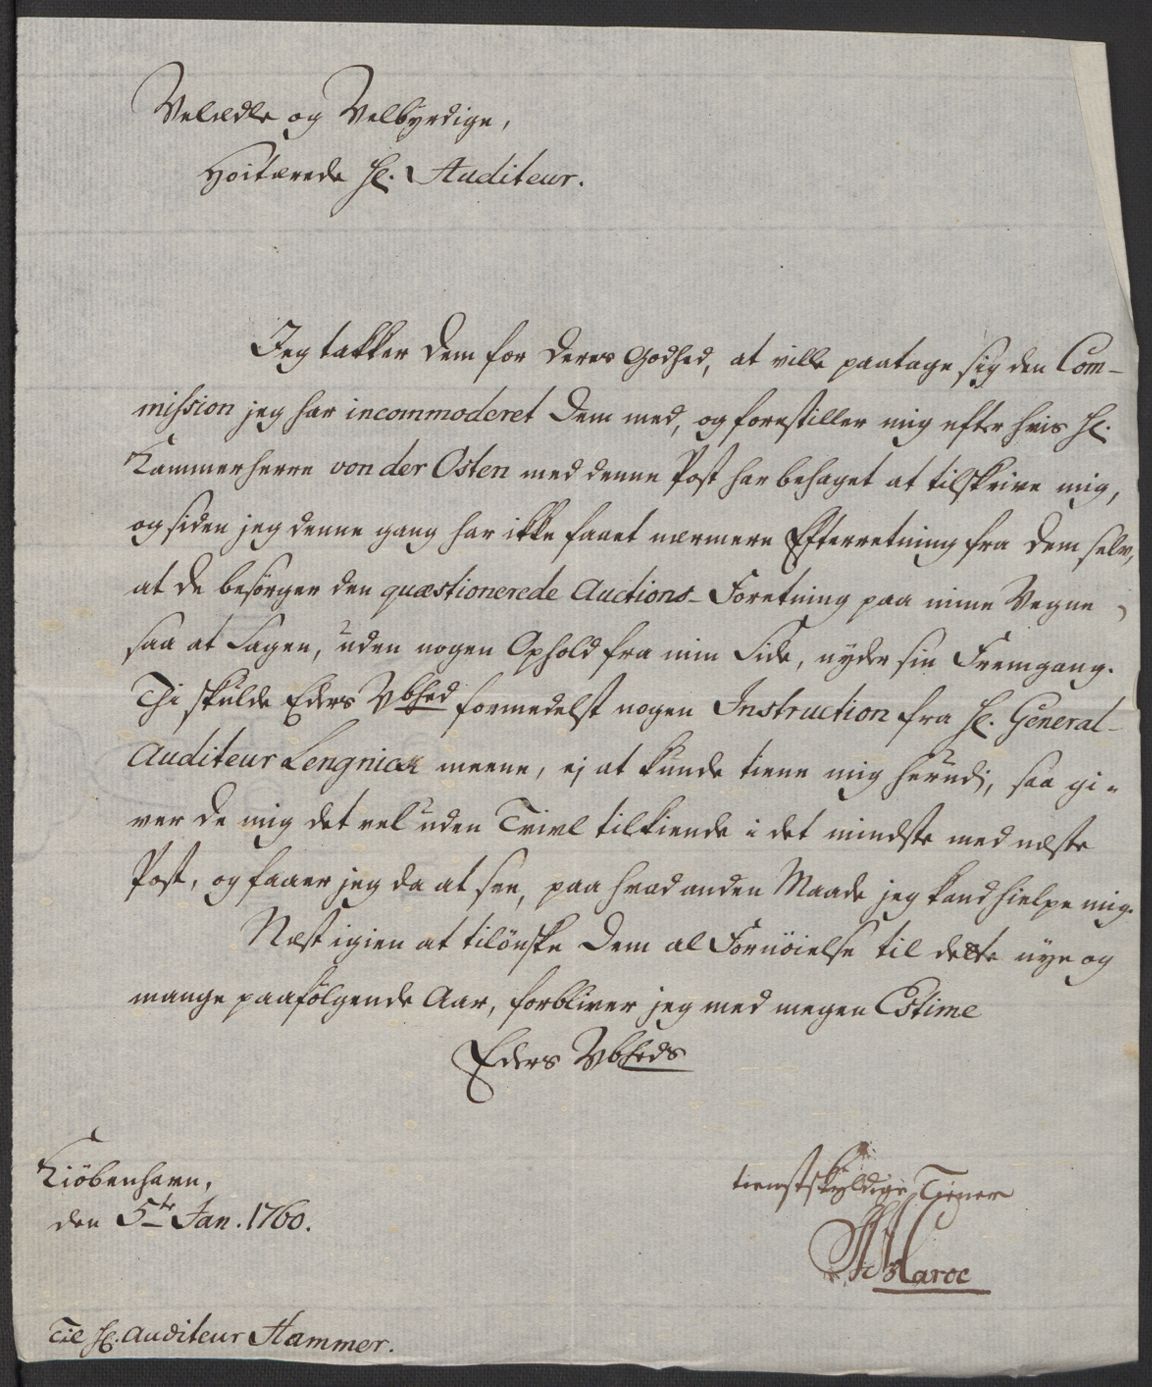 Velædle og Velbyrdige,
Höitærede Hr. Auditeur.
Jeg takker Dem for Deres Godhed, at ville paatage sig den Com-
mission jeg har incommoderet Dem med, og forestiller mig efter hvis Hr.
Kammerherre von der Osten med denne Post har behaget at tilskrive mig,
og siden jeg denne gang har ikke faaet nærmere Efterretning fra Dem selv,
at De besörger den quæstionerede Auctions-Foretning paa mine Vegne
saa at Sagen, uden nogen Ophold fra min Side, nyder sin Fremgang.
Thi skulde Eders Vbhed formedelst nogen Instruction fra Hr. General-
Auditeur Lengnick meene, ej at kunde tiene mig herudj, saa gi-
ver De mig det vel uden Tvivl tilkiende i det mindste med næste
Post, og faaer jeg da at see, paa hvad anden Maade jeg kand hielpe mig.
Næst igien at tilönske Dem al Fornöielse til dette nye og
mange paafölgende Aar, forbliver jeg med megen Estime
Eders Vbheds
Kiöbenhavn,
den 5te Jan. 1760.
tienstskyldige Tiener
Maroc
Til Hr. Auditeur Hammer.